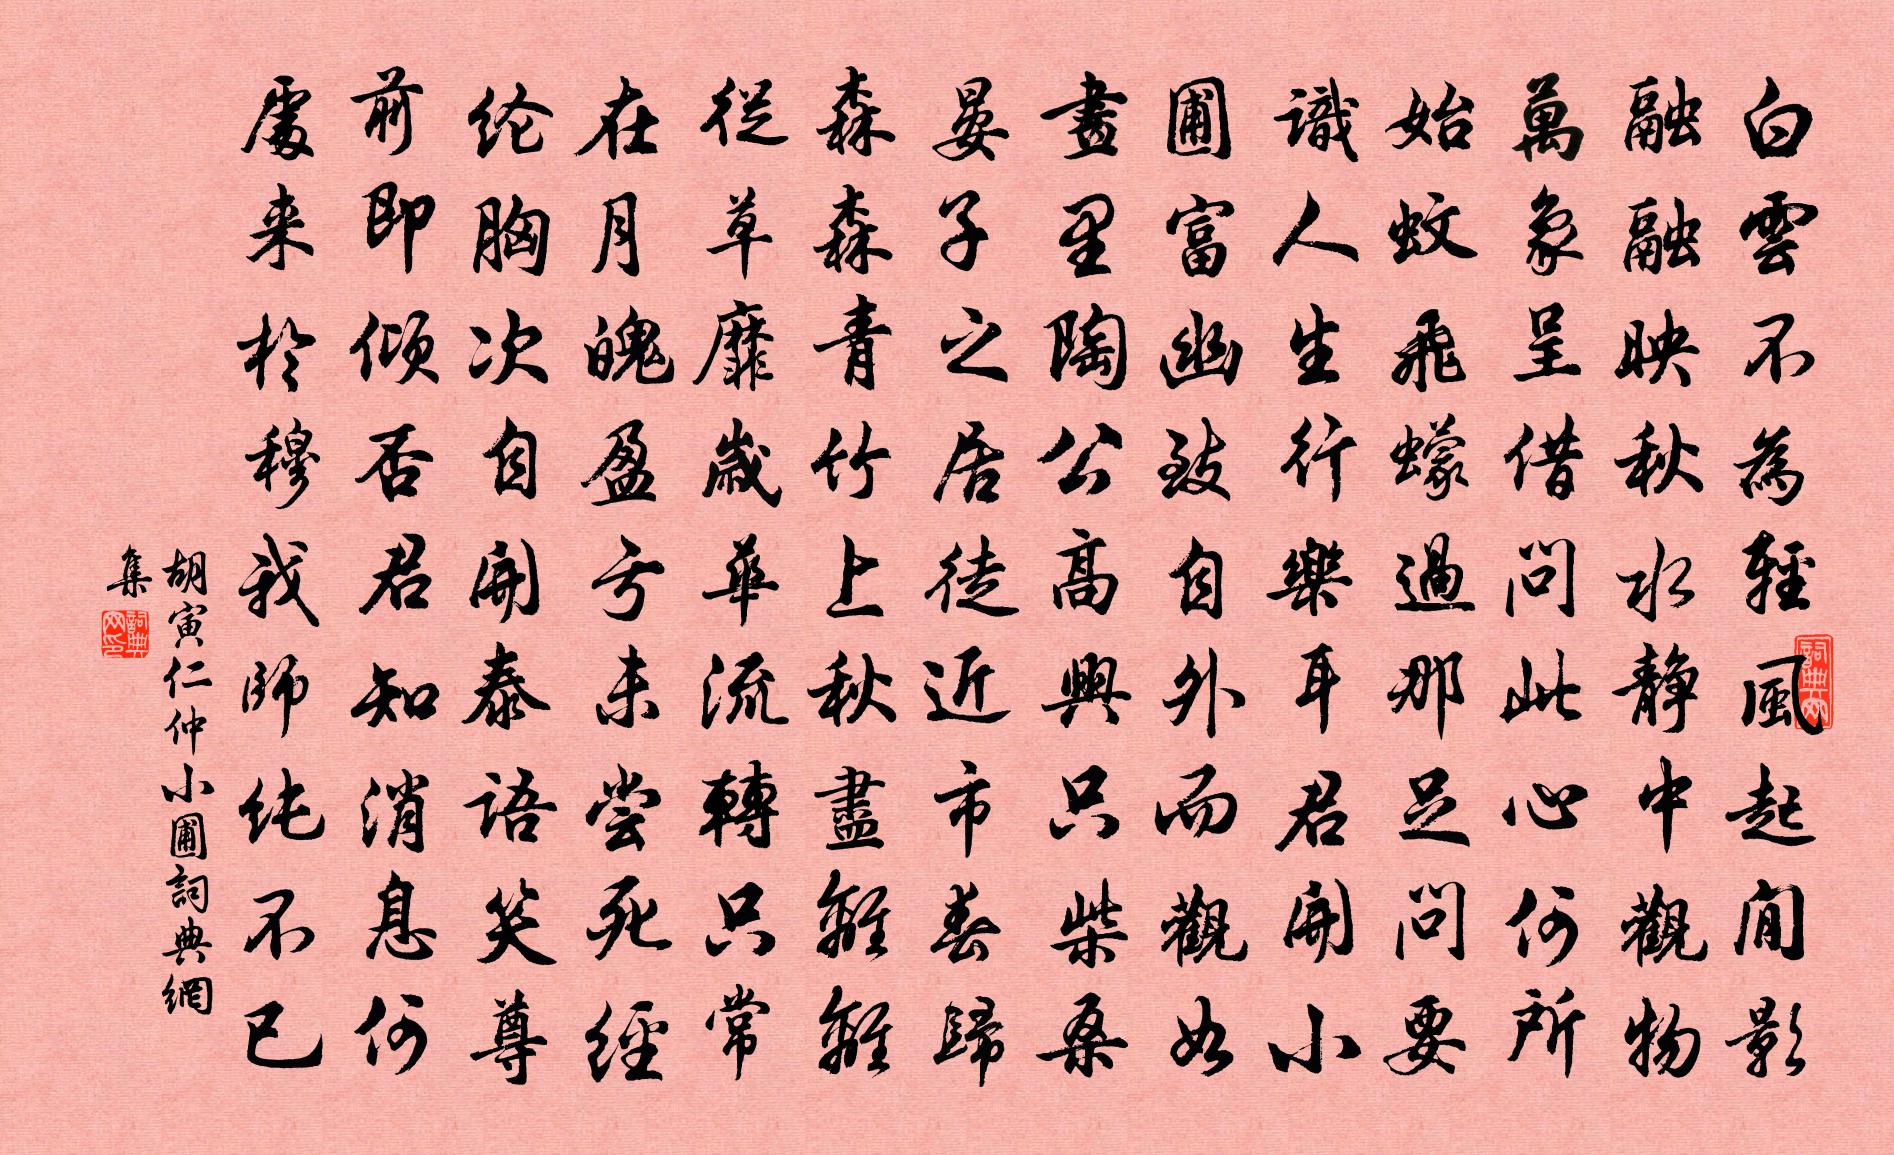 白雲不為輕風起閒影
融融映秋水静中觀物
萬象呈借問此心何所
始蚊飛蠓過那足問要
識人生行樂耳君開小
圃富幽致自外而觀如
畫里陶公高興只柴桑
晏子之居徒近市春歸
森森青竹上秋盡離離
從草靡歲華流轉只常
在月魄盈亏未嘗死經
纶胸次自開泰語笑尊
前即傾否君知消息何
處来於穆我師纯不已
胡寅仁仲小圃詞典網
集
詞典網
詞典網印